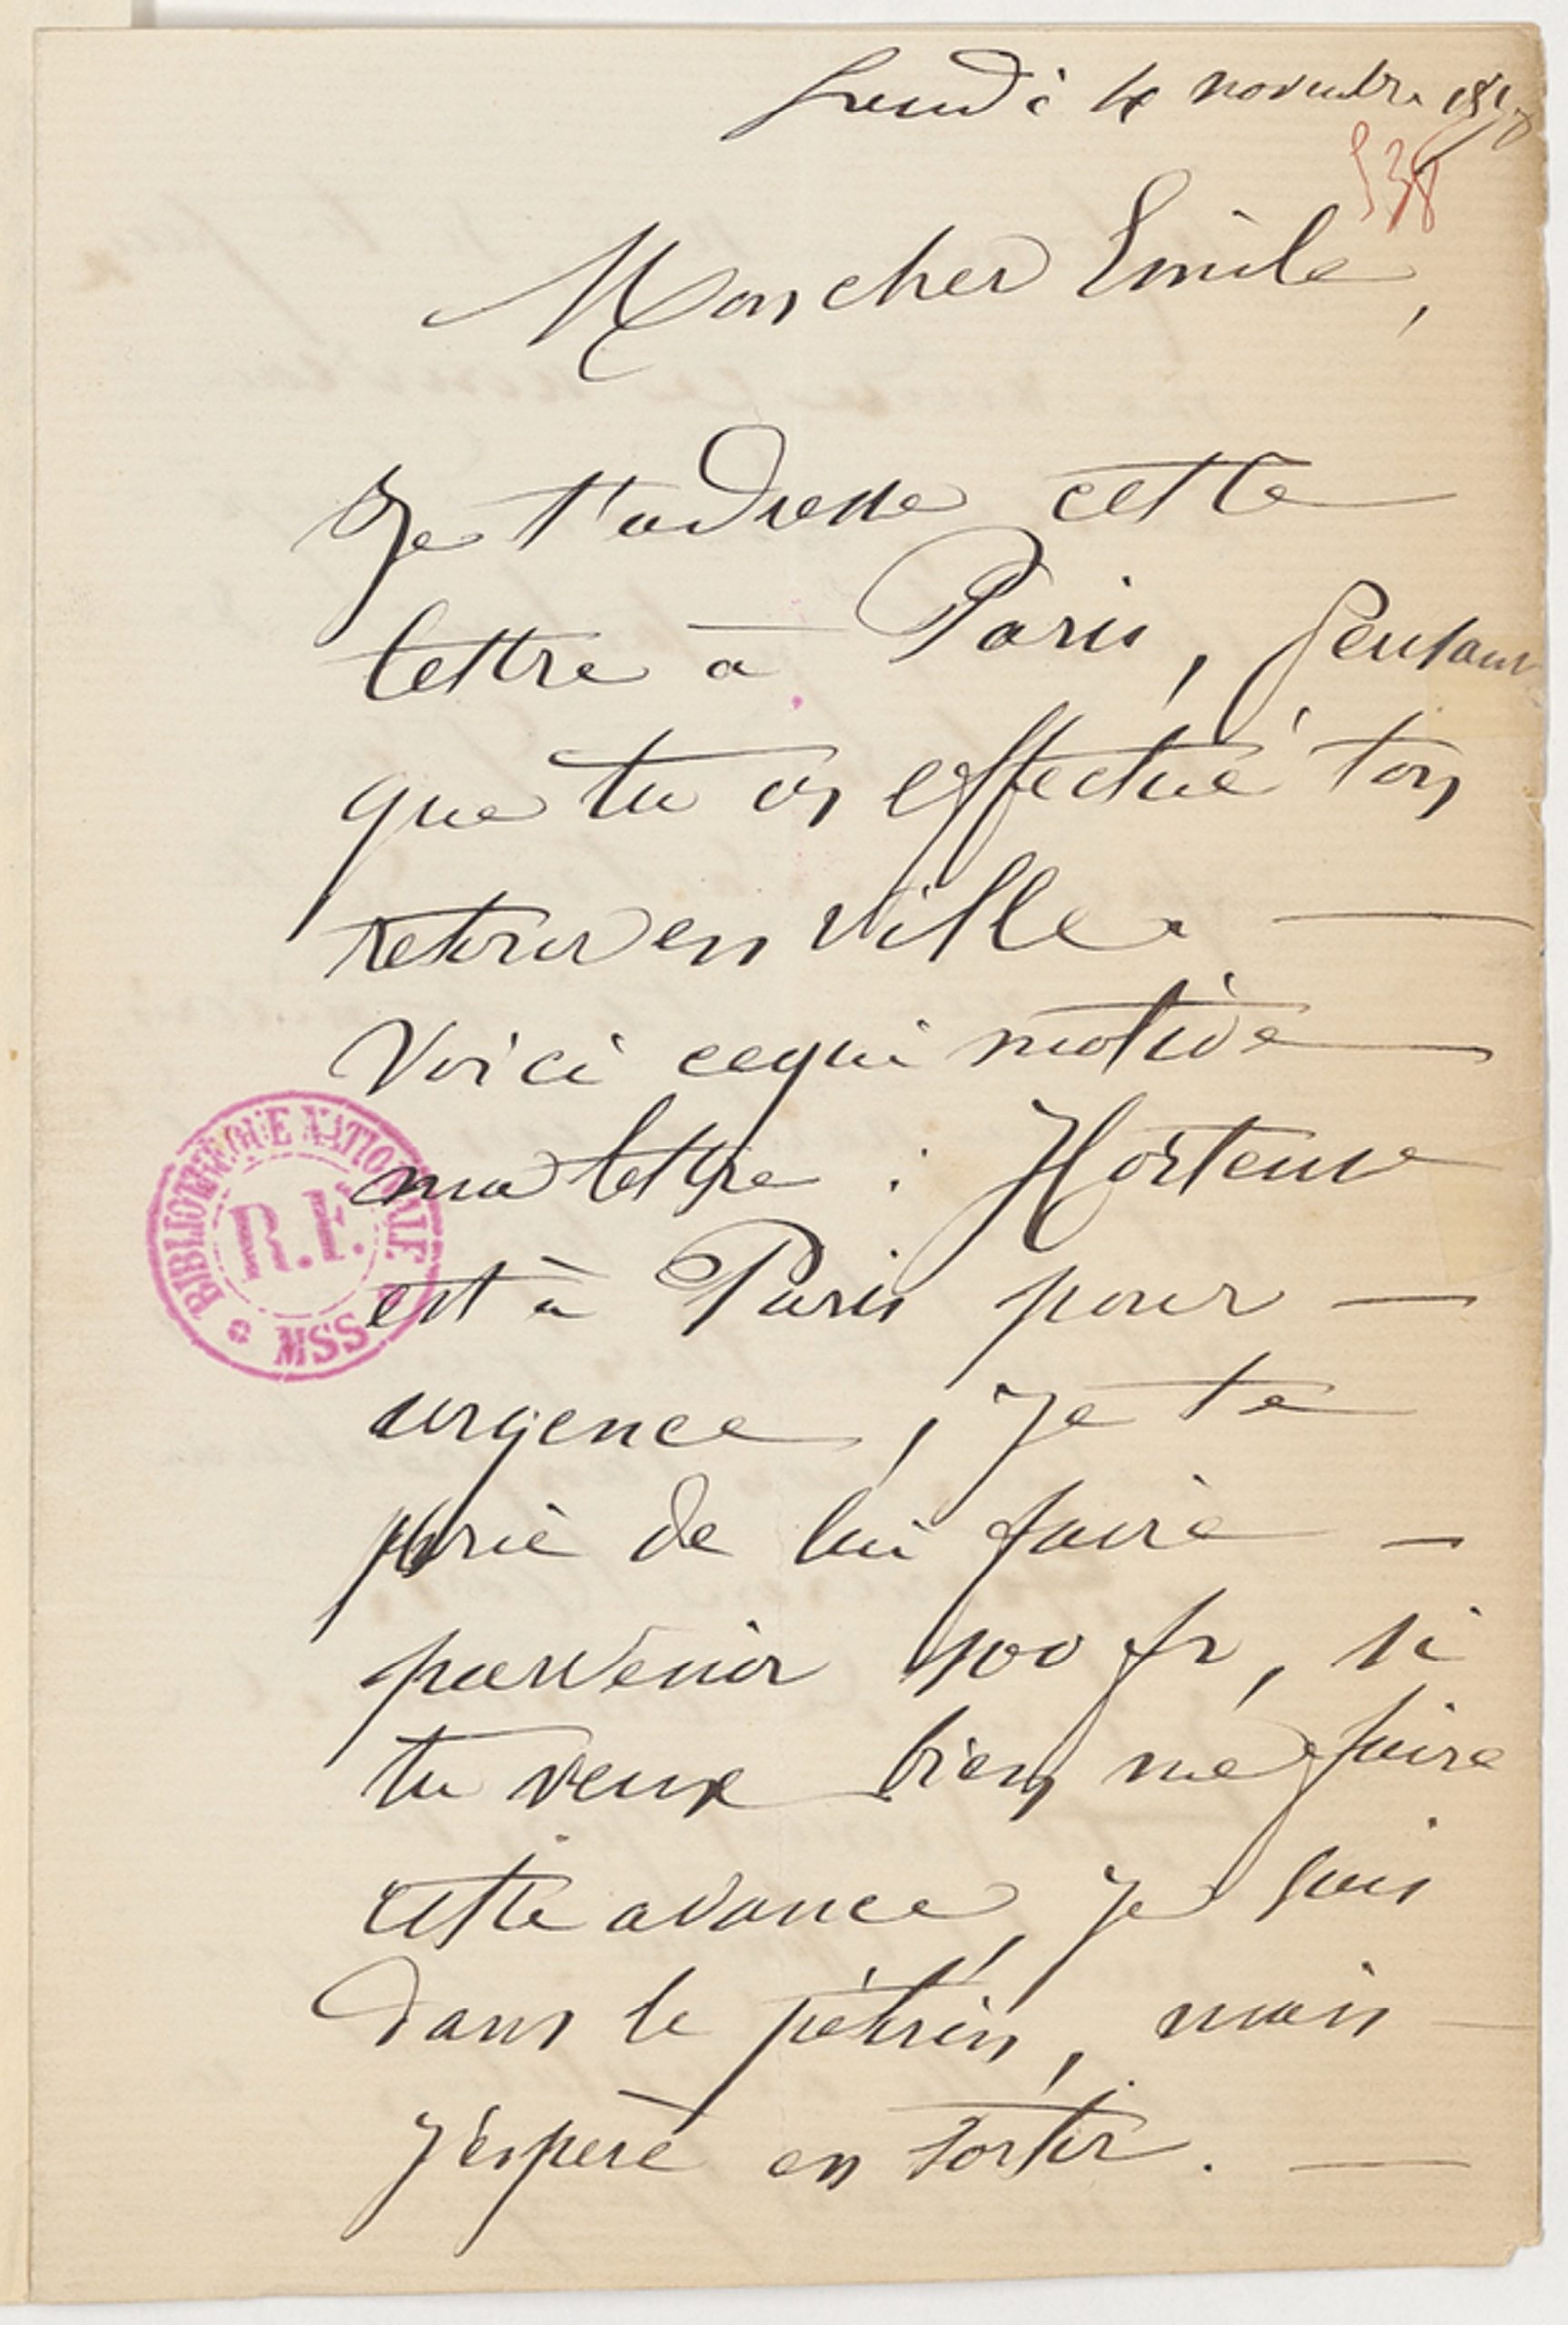 Lundi 4 novembre 1878
538
Mon cher Emile,
Je t'adresse cette
lettre à Paris, pensant
que tu as effectué ton
retour en ville. —
Voici ce qui motive
ma lettre : Hortense
est à Paris pour —
urgence, je te
prie de lui faire —
parvenir 100 fr, si
tu veux bien me faire
cette avance, je suis
dans le pétrin, mais —
j'espère en sortir. —
BIBLIOTHEQUE NATIONALE
R.F.
MSS